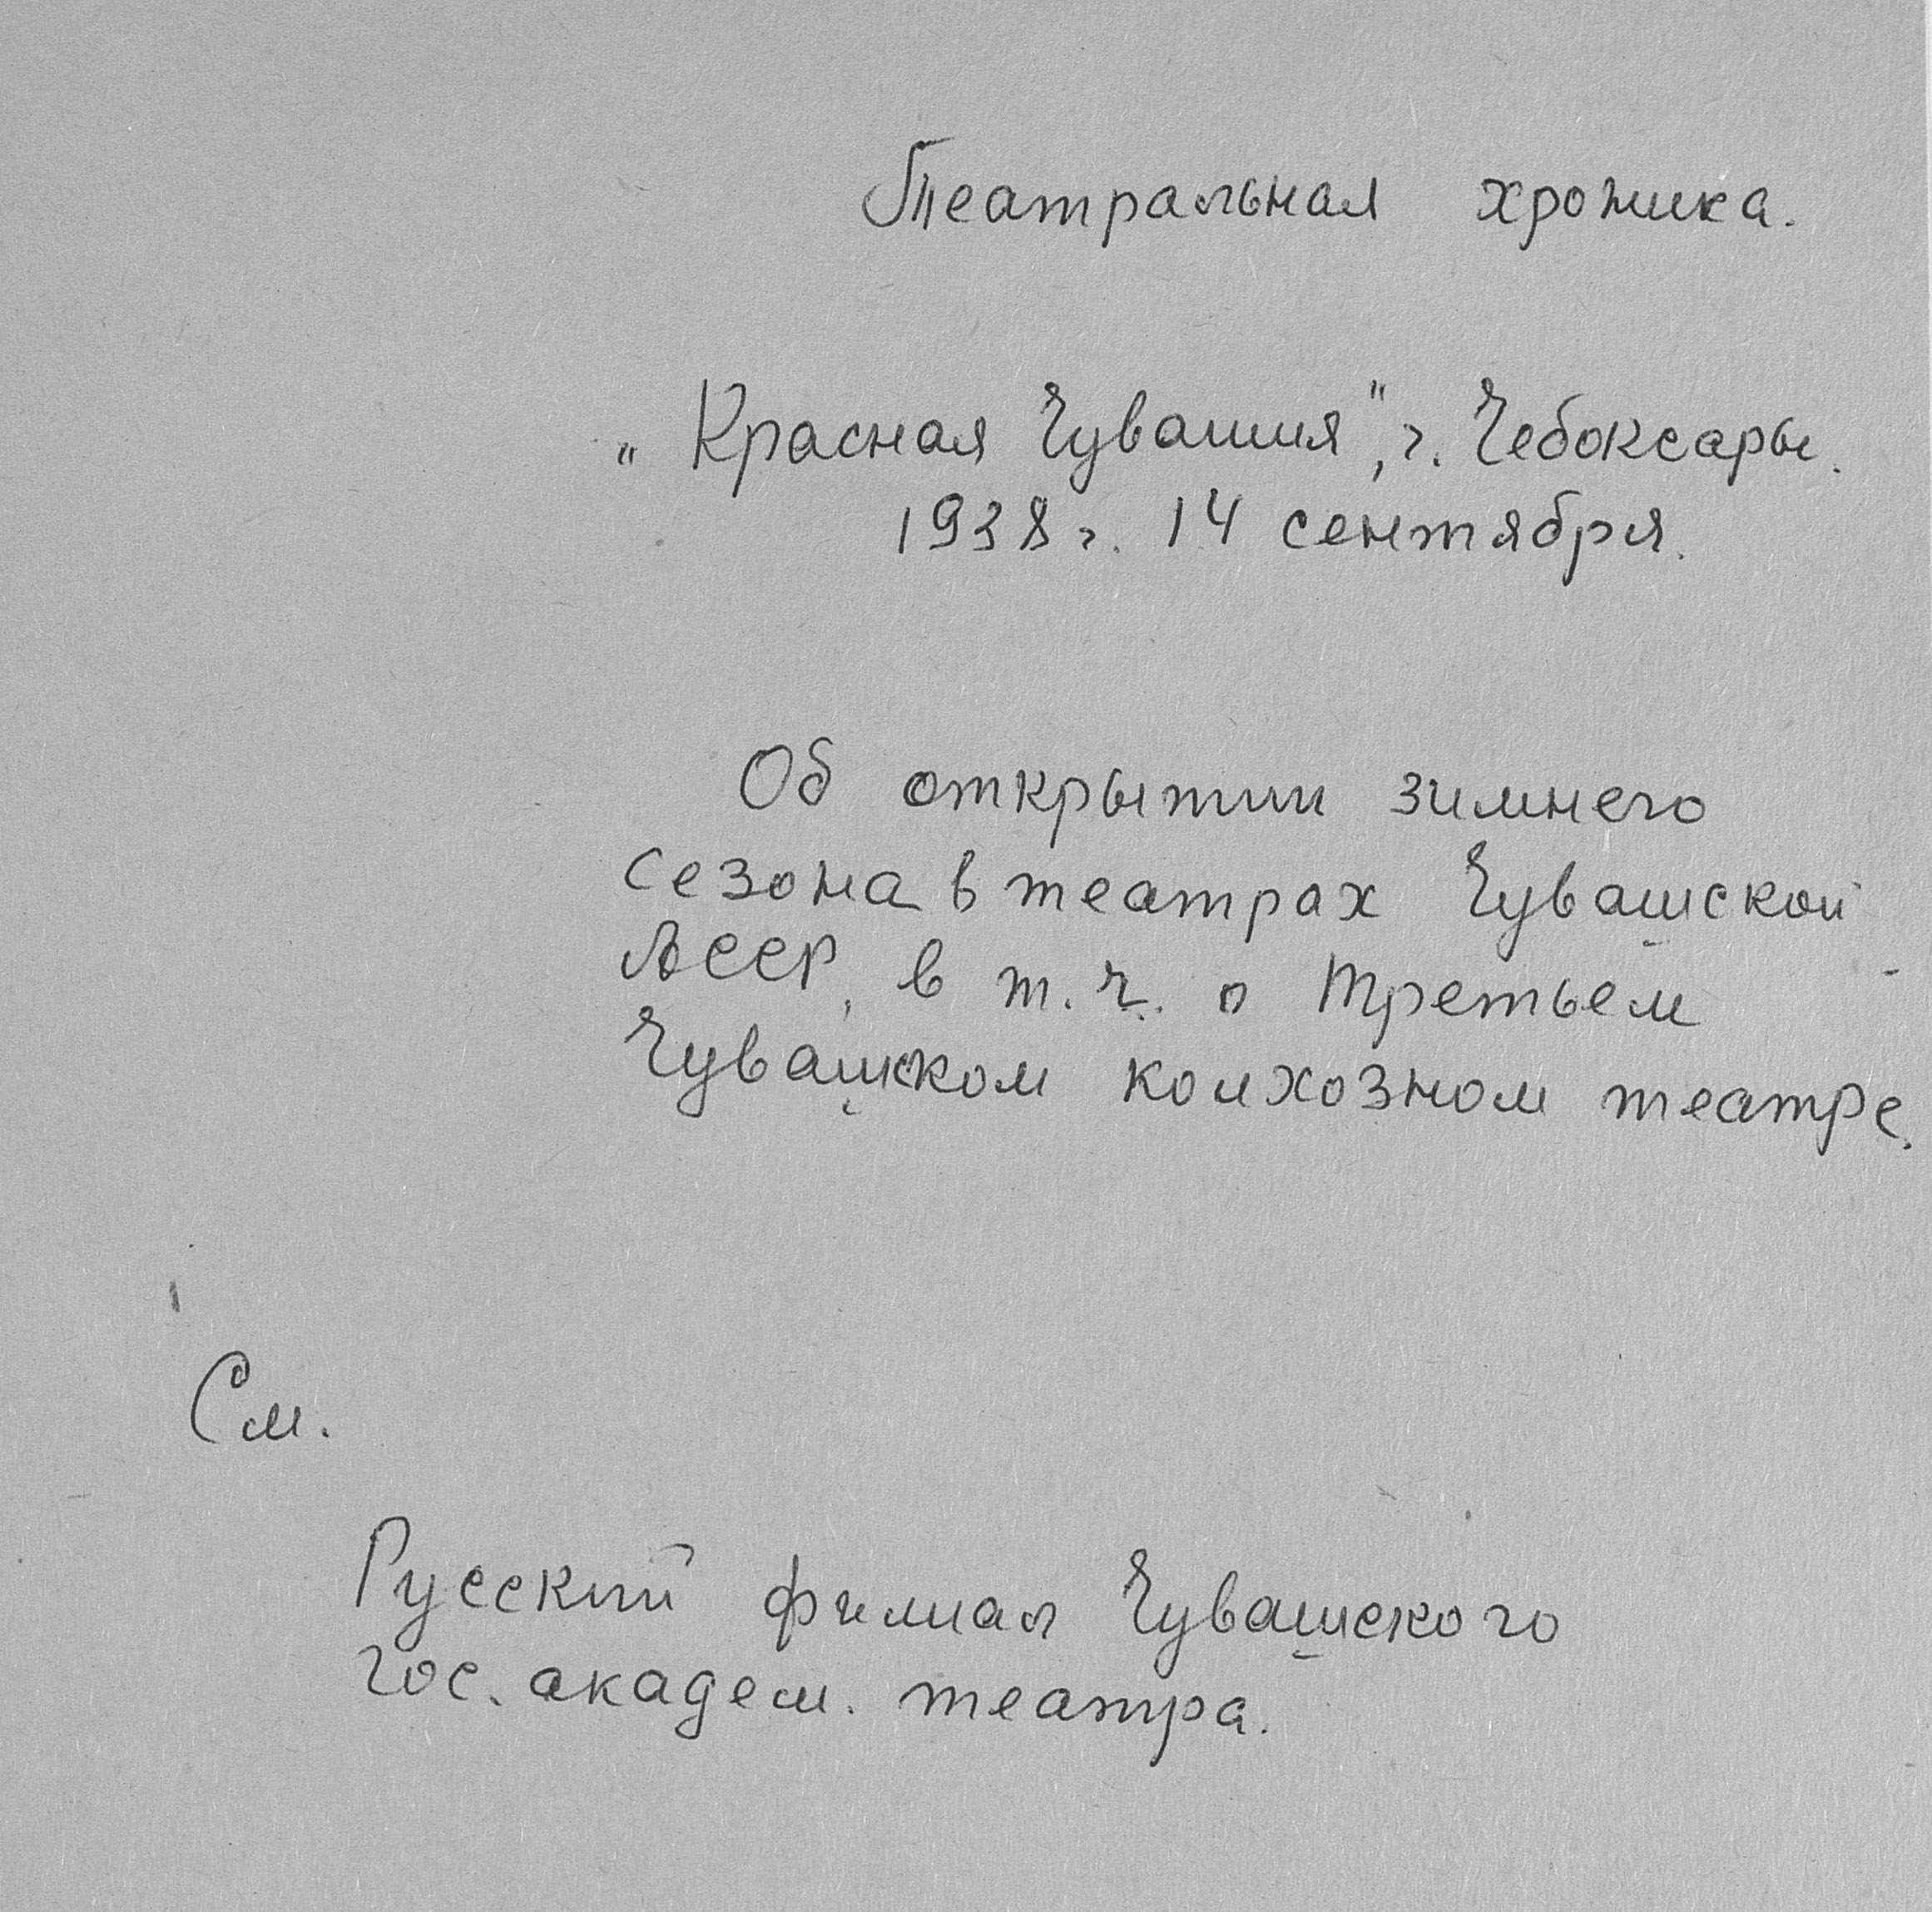 Театральная хроника.
„Красная Чувашия", г. Чебоксары.
1938 г. 14 сентября.
Об открытии зимнего
сезона в театрах Чувашской
АССР, в т.ч. о Третьем
Чувашском колхозном театре.
См.
Русский филиал Чувашского
гос. академ. театра.